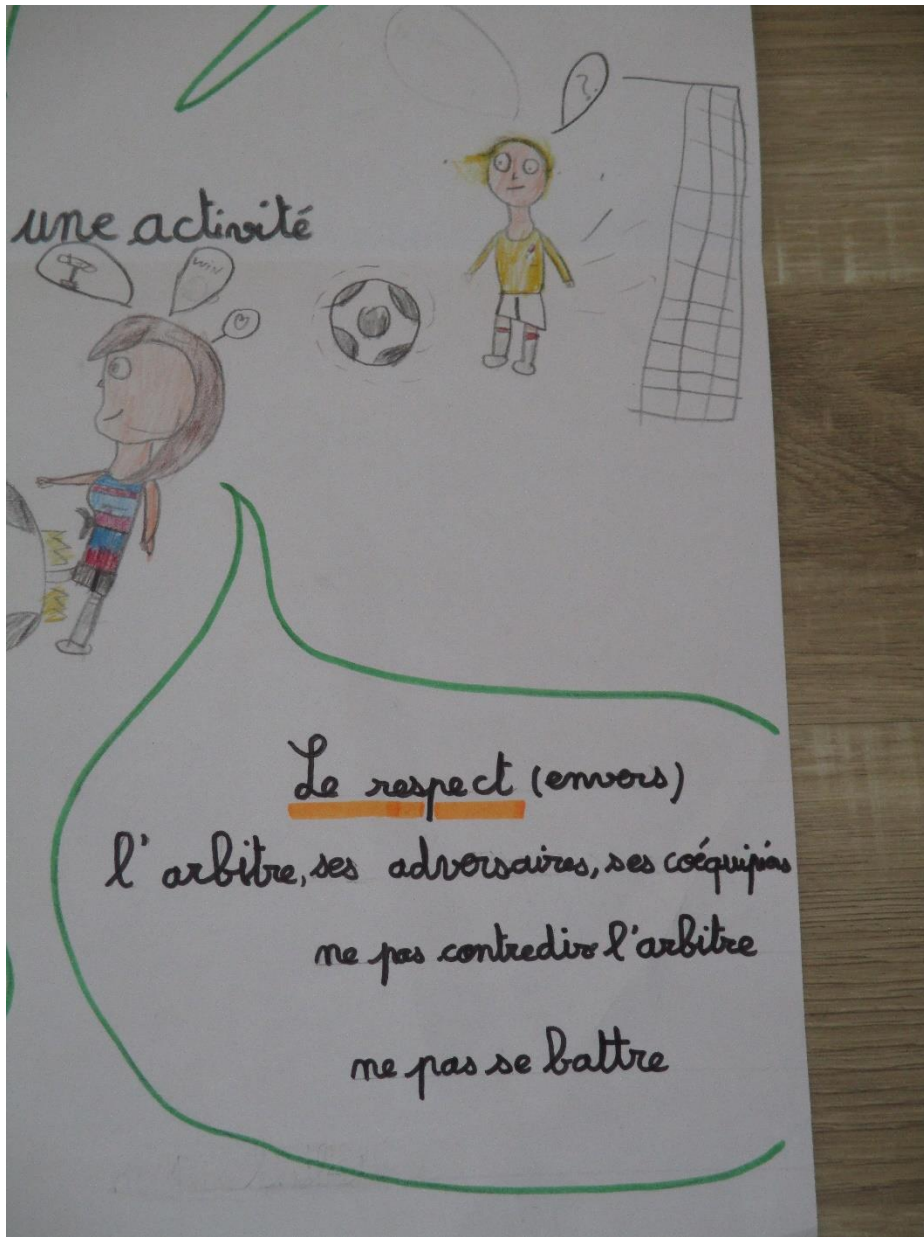 ?
une activité
win
Le respect (envers)
l'arbitre, ses adversaires, ses coéquipiers
ne pas contredire l'arbitre
ne pas se battre